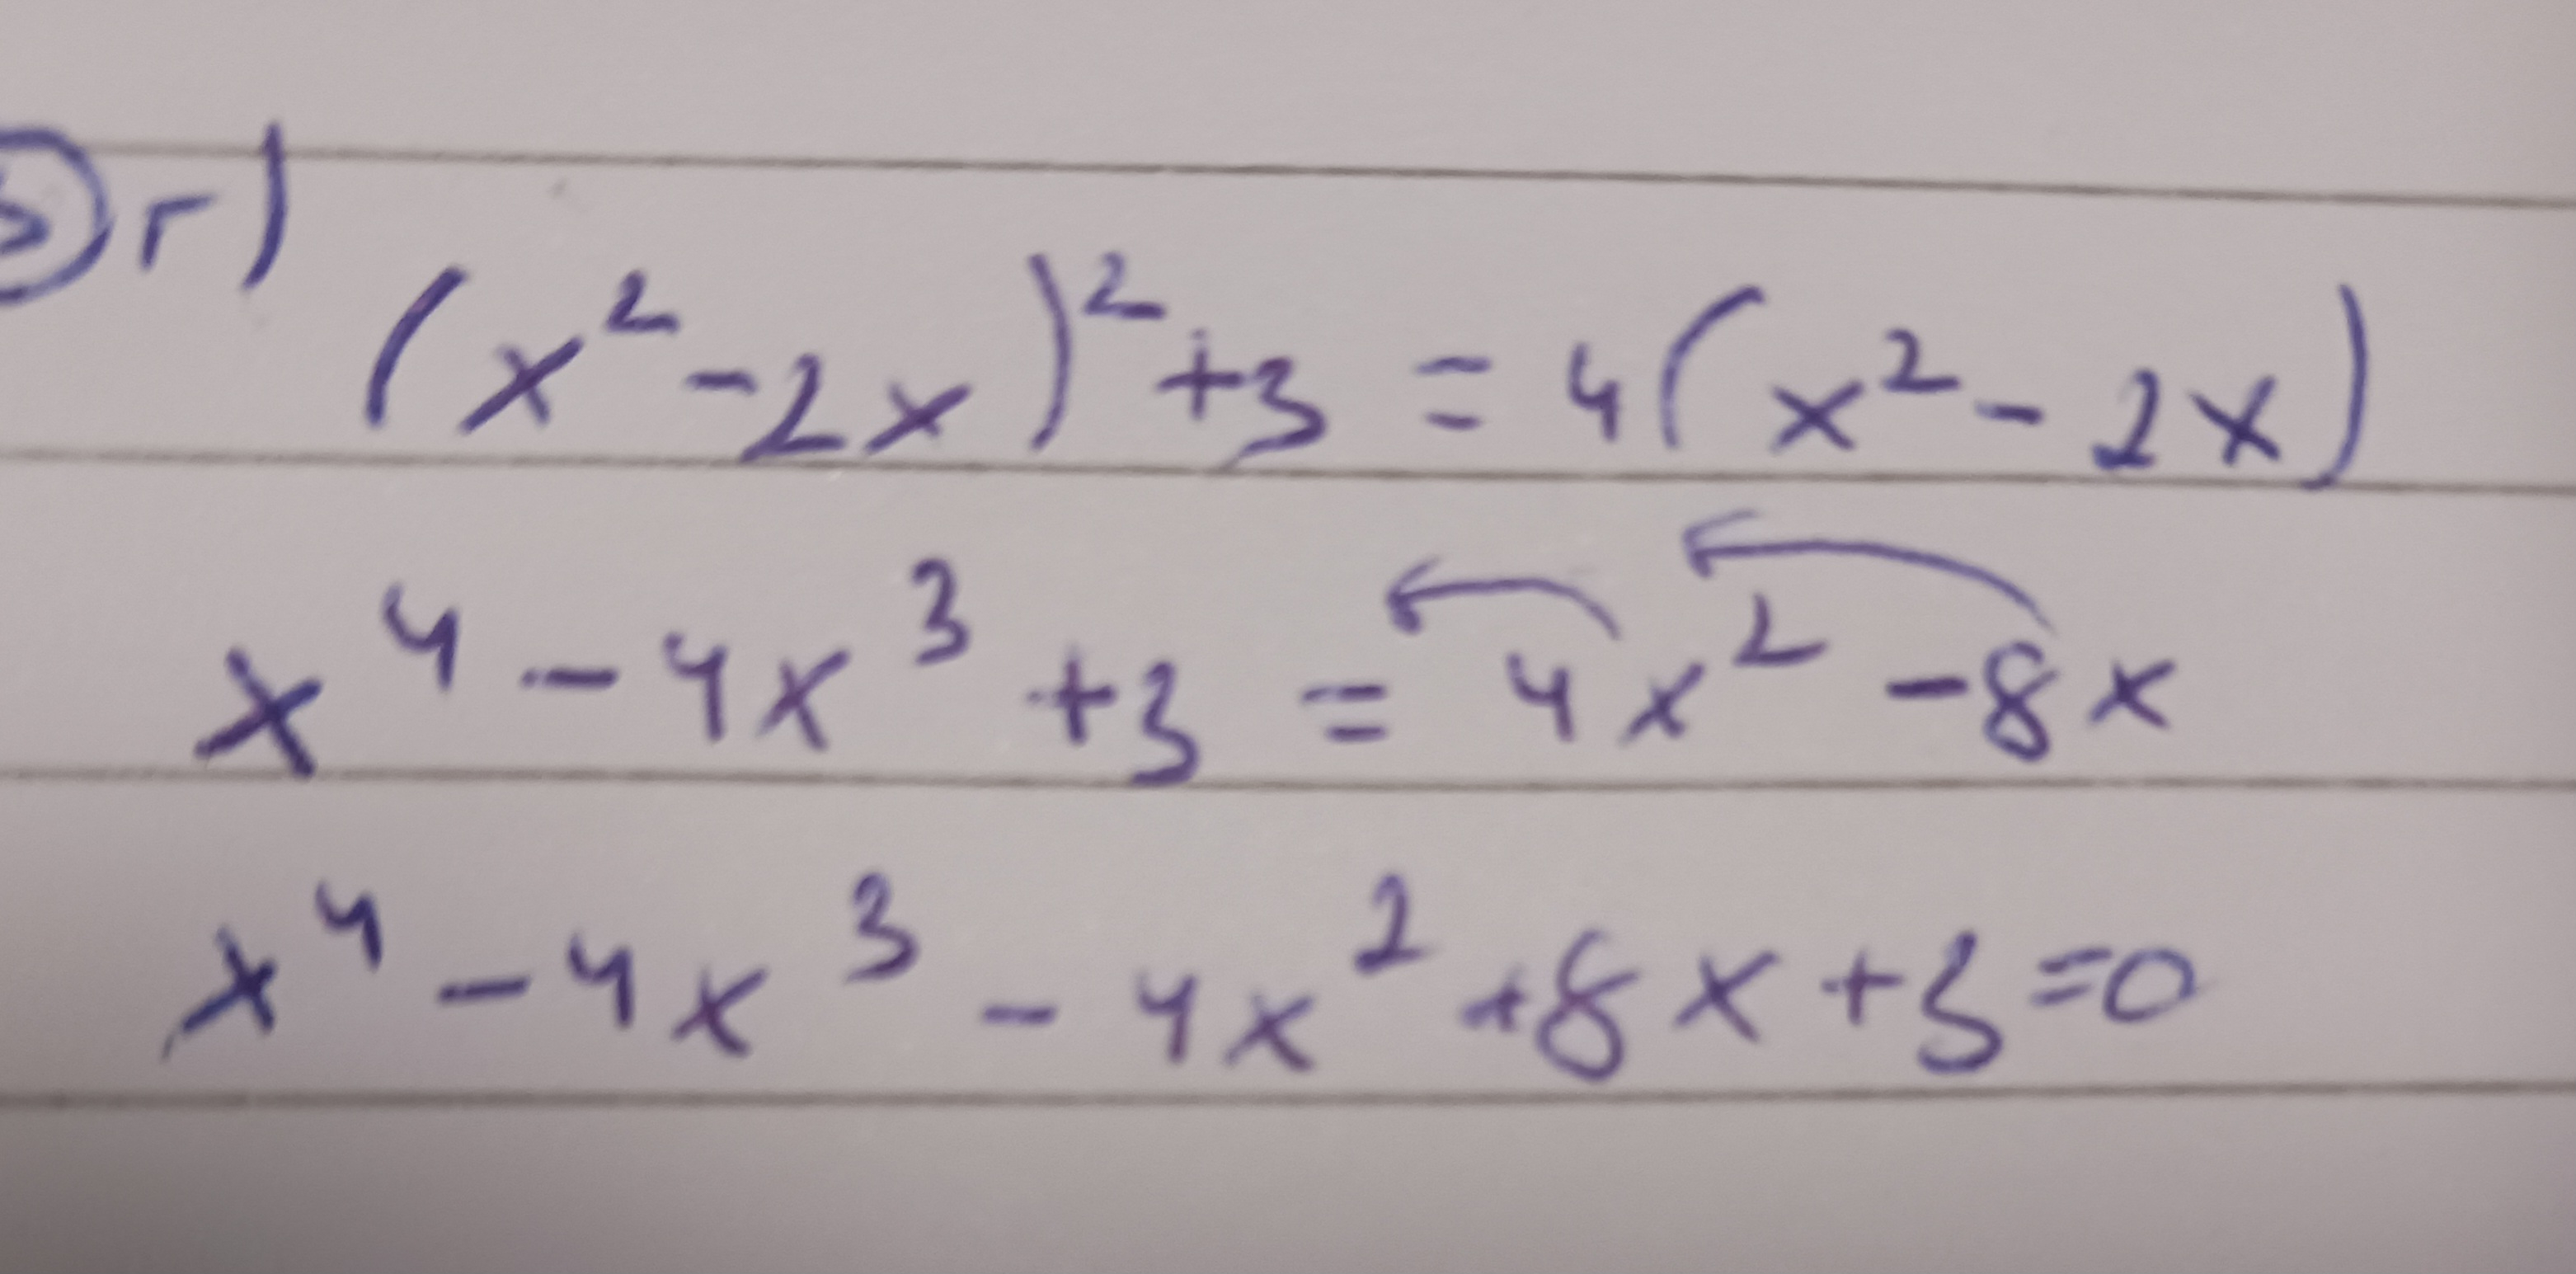 г)
(x² - 2x)² + 3 = 4(x² - 2x)
x⁴ - 4x³ + 3 = 4x² - 8x
x⁴ - 4x³ - 4x² + 8x + 3 = 0